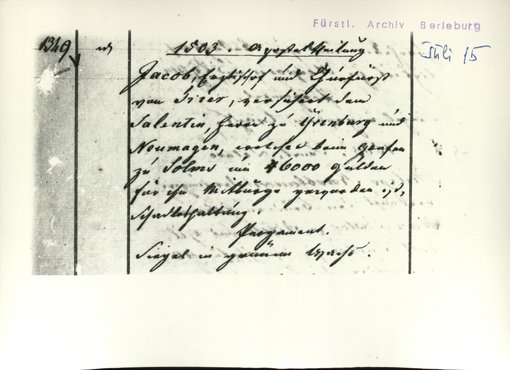 Fürstl. Archiv Berleburg
1349
1503. Apostel theilung
Juli 15
Jacob, Erzbischof und Churfürst
von Trier, versichert dem
Salentin, Herrn zu Ysenburg und
Neumagen, welcher beim Grafen
zu Solms um 6000 Gulden
für ihn Mitbürge geworden ist,
Schadloshaltung.
Pergament.
Siegel in grünem Wachs.